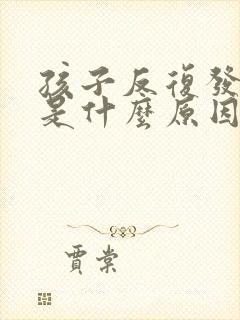 孩子反復發
是什麼原因
賈棠